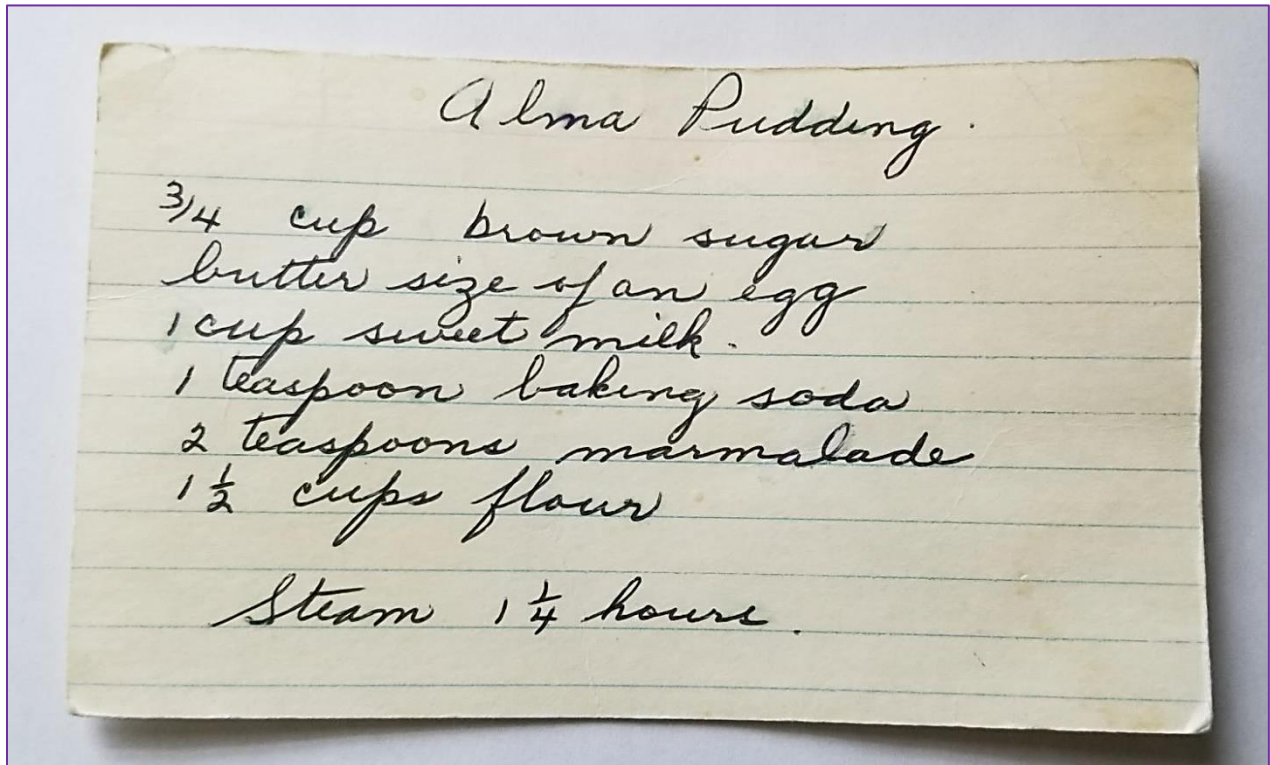 Alma Pudding.
3/4 cup brown sugar
butter size of an egg
1 cup sweet milk.
1 teaspoon baking soda
2 teaspoons marmalade
1 1/2 cups flour
Steam 1 1/4 hours.